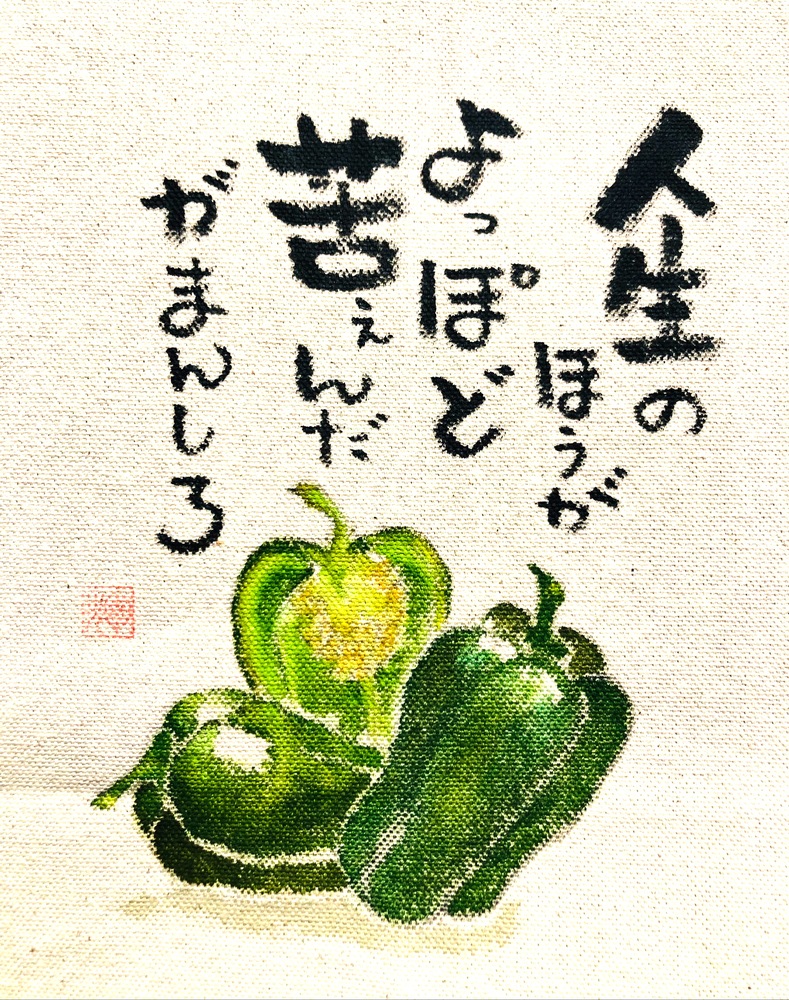 人生の
ほうが
よっぽど
苦ぇんだ
がまんしろ